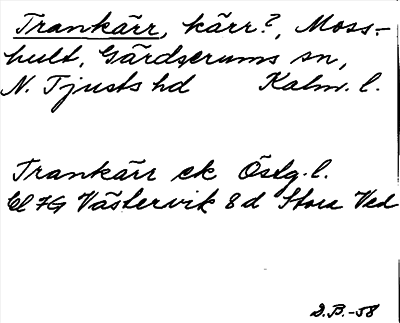 Trankärr, kärr?, Moss-
hult, Gärdserums sn,
N. Tjusts hd Kalm. l.
Trankärr ek Östg. l.
Bl 7G Västervik 8 d Stora Ved
D.B.-58